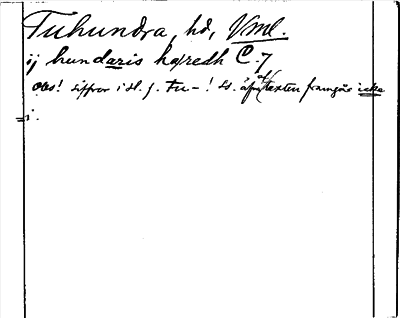 Tuhundra, hd, Vml.
ij hundaris hæredh C. 7
Obs! siffror i st. f. Tu-! Ss. af texten framgår icke